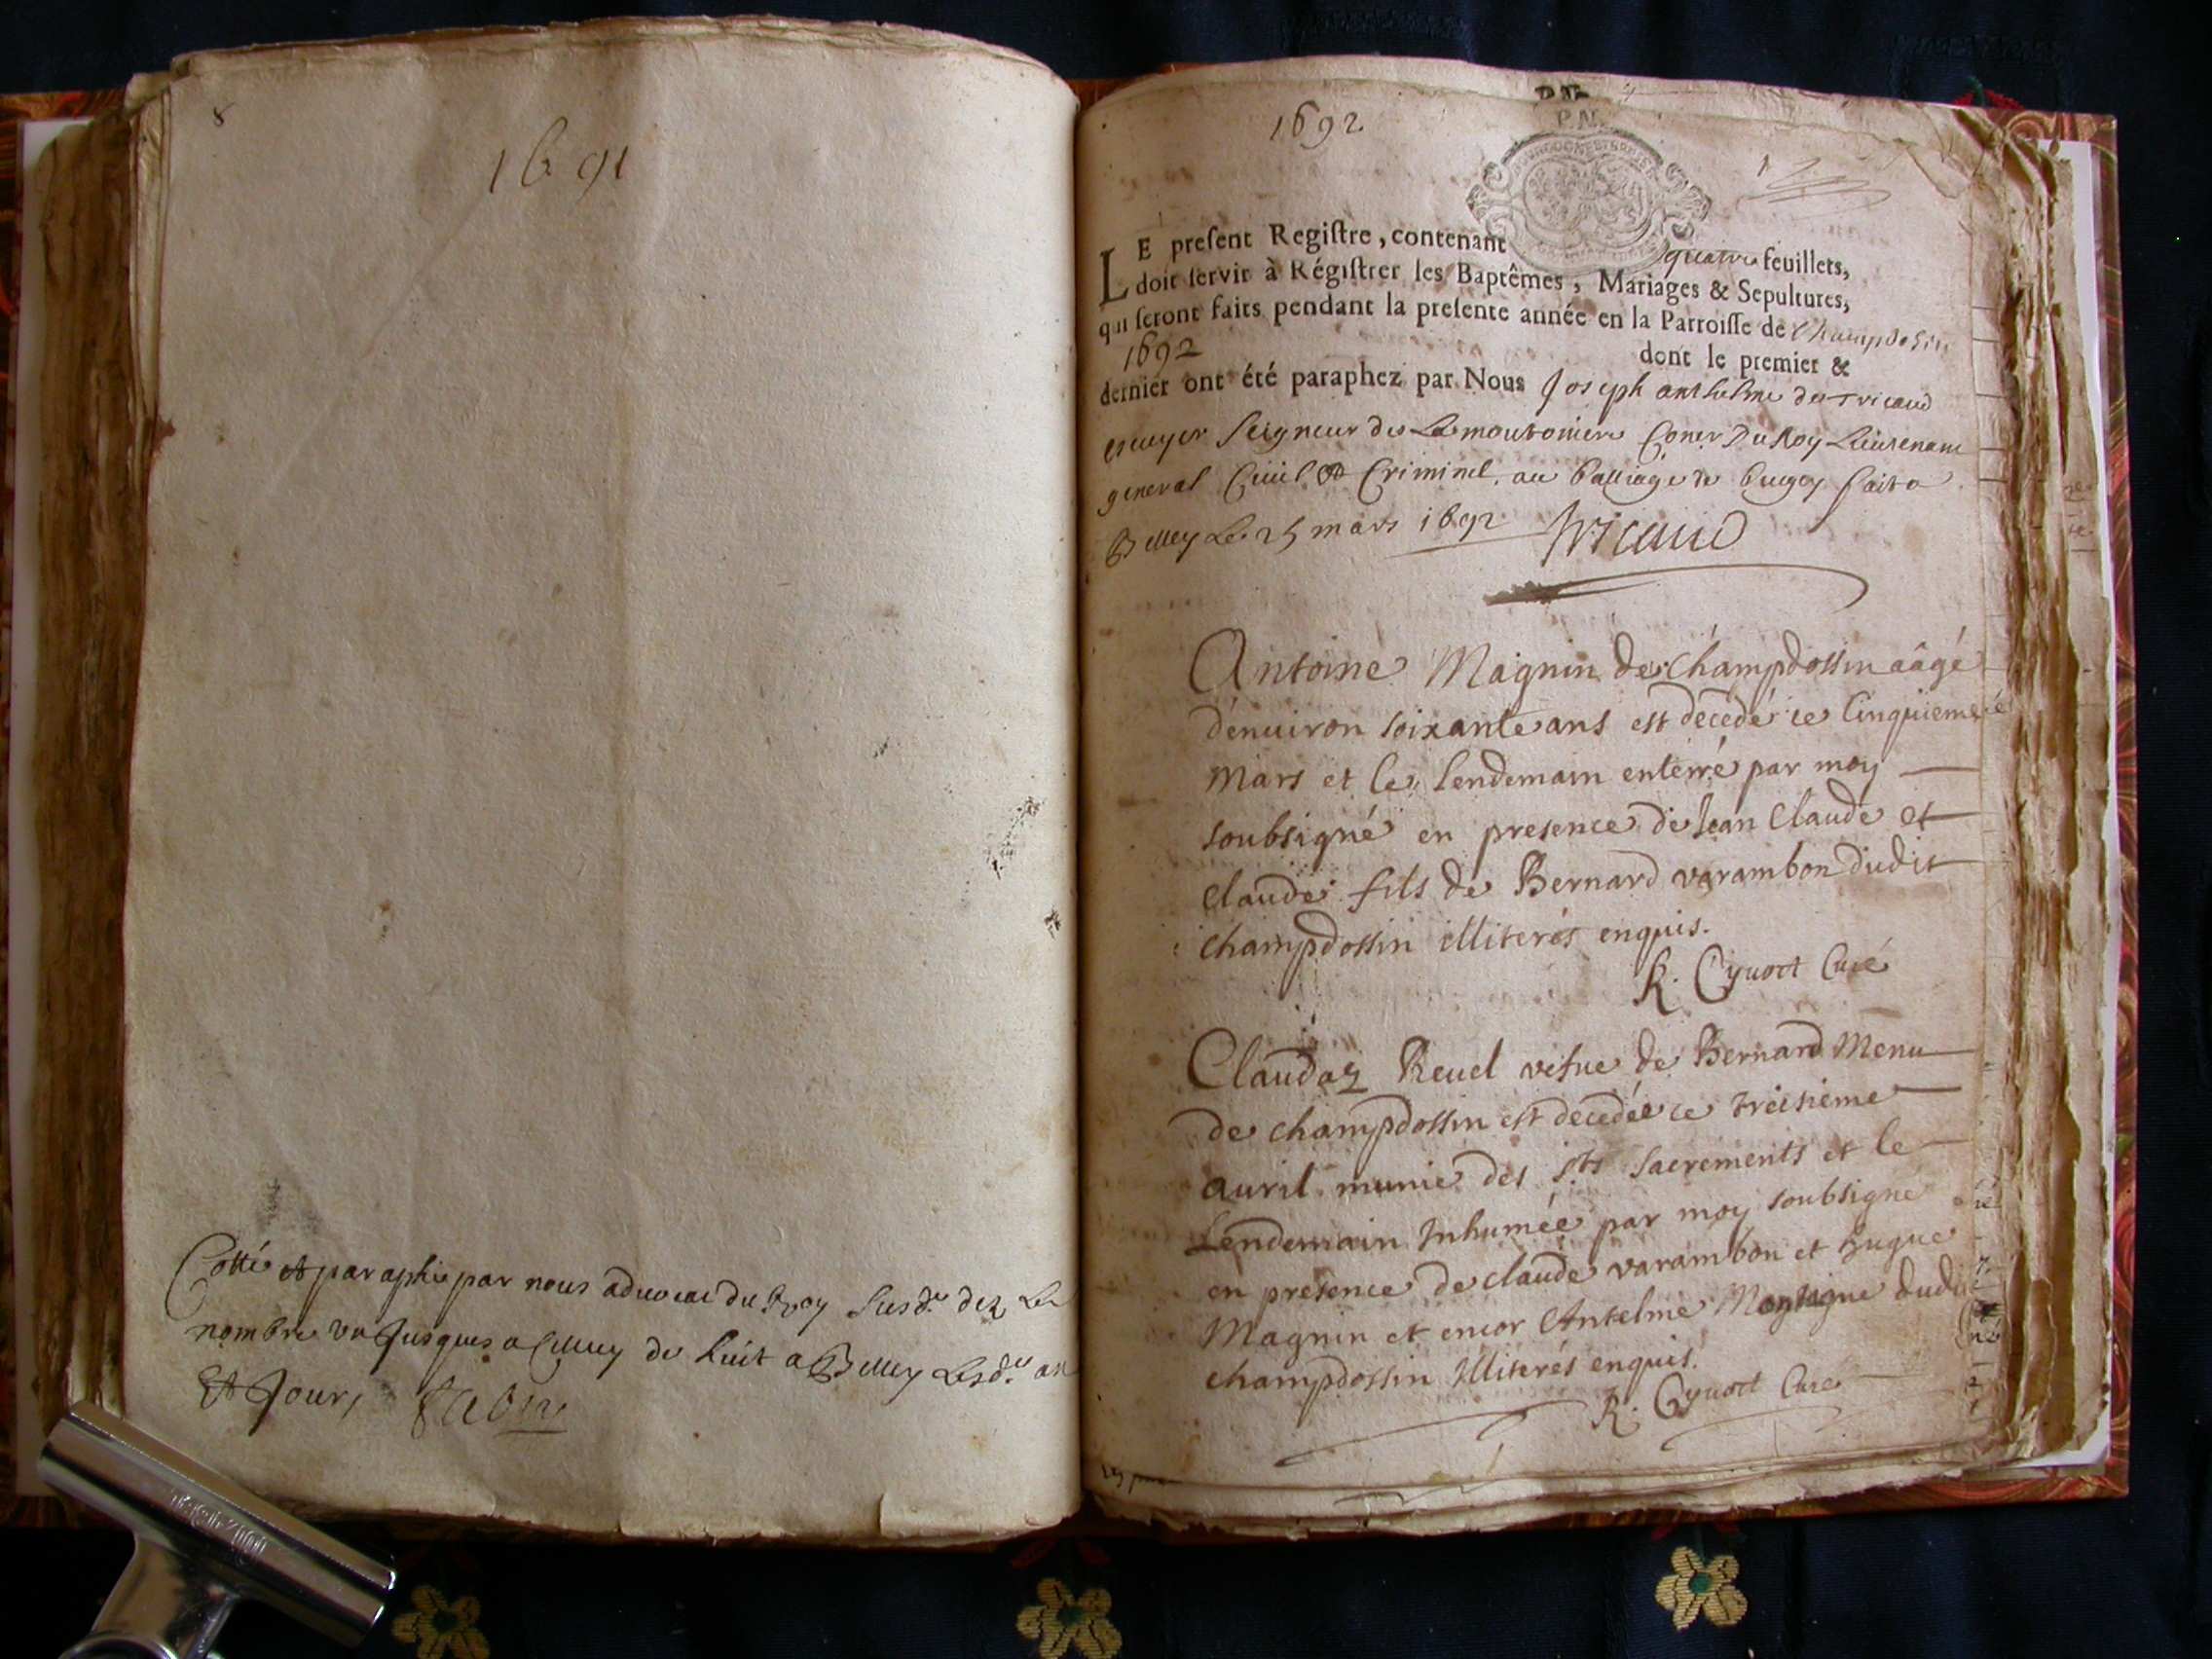 8
1691
Cotté et paraphé par nous advocat du Roy susd.t dez le
nombre un jusques a celluy de huit a Belley lesd.t an
et jour,
1692
P.N.
LE preſent Regiſtre, contenant quatre feuillets,
doit ſervir à Régiſtrer les Baptêmes, Mariages & Sepultures,
qui ſeront faits pendant la preſente année en la Parroiſſe de Champdosin
1692 dont le premier &
dernier ont été paraphez par Nous Joseph anthelme de Tricaud
escuyer Seigneur de La moutonniere Coner Du Roy Lieutenant
general Civil et Criminel au Balliage de Bugey fait a
Belley Le 25 mars 1692 Tricaud
Antoine Magnin de Champdossin aâgé
d'enuiron soixante ans est decedé ce Cinquieme
Mars et le lendemain enterré par moy
soubsigné en presence de Jean Claude et
Claude fils de Bernard varambon dudit
champdossin illiterés enquis.
R. Cyuoct Curé
Clauda Reuel vefue de Bernard Menu
de champdossin est decedée ce treisieme
auril munie des sts sacrements et le
Lendemain Inhumée par moy soubsigné
en presence de claude varambon et hugue
Magnin et encor Antelme dudit
champdossin Illiterés enquis.
R. Cyuoct Curé